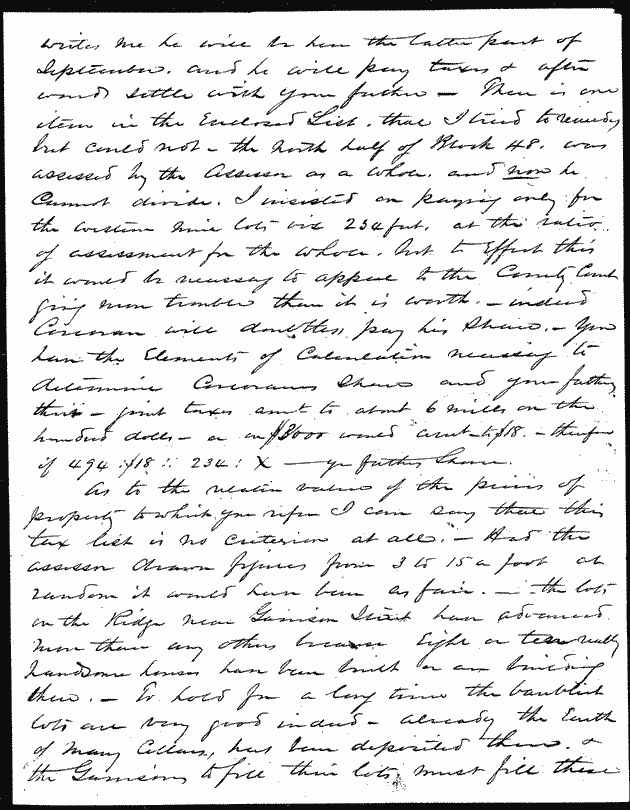 writes me he will be here the latter part of
September. and he will pay taxes & after
wards settle with your father — There is one
item in the Enclosed List. that I tried to remedy
but could not — the north half of Block 48. was
assessed by the Assessor as a whole. and now he
Cannot divide. I insisted on paying only for
the western nine lots viz 234 feet. at the ratio
of assessment for the whole. but to Effect this
it would be necessary to appeal to the County Court
giving more trouble than it is worth. — indeed
Corcoran will doubtless pay his Share. — You
have the Elements of Calculation necessary to
determine Corcorans Share and your fathers
this — joint taxes amt to about 6 mills on the
hundred dolls — or on $3000 would amt to $18. — therefore
if 494 : $18 :: 234 : X — yr fathers Share.
As to the relative value of the pieces of
property to which you refer I can say that this
tax list is no criterion at all. — Had the
assessor drawn figures from 3 to 15 a foot at
random it would have been as fair. — the lots
on the Ridge near Garrison Street have advanced
more than any others because Eight or ten really
handsome houses have been built or are building
there. — To hold for a long time the
lots are very good indeed — already the Earth
of many Cellars, has been deposited there. &
the Garrisons to fill their lots must fill these